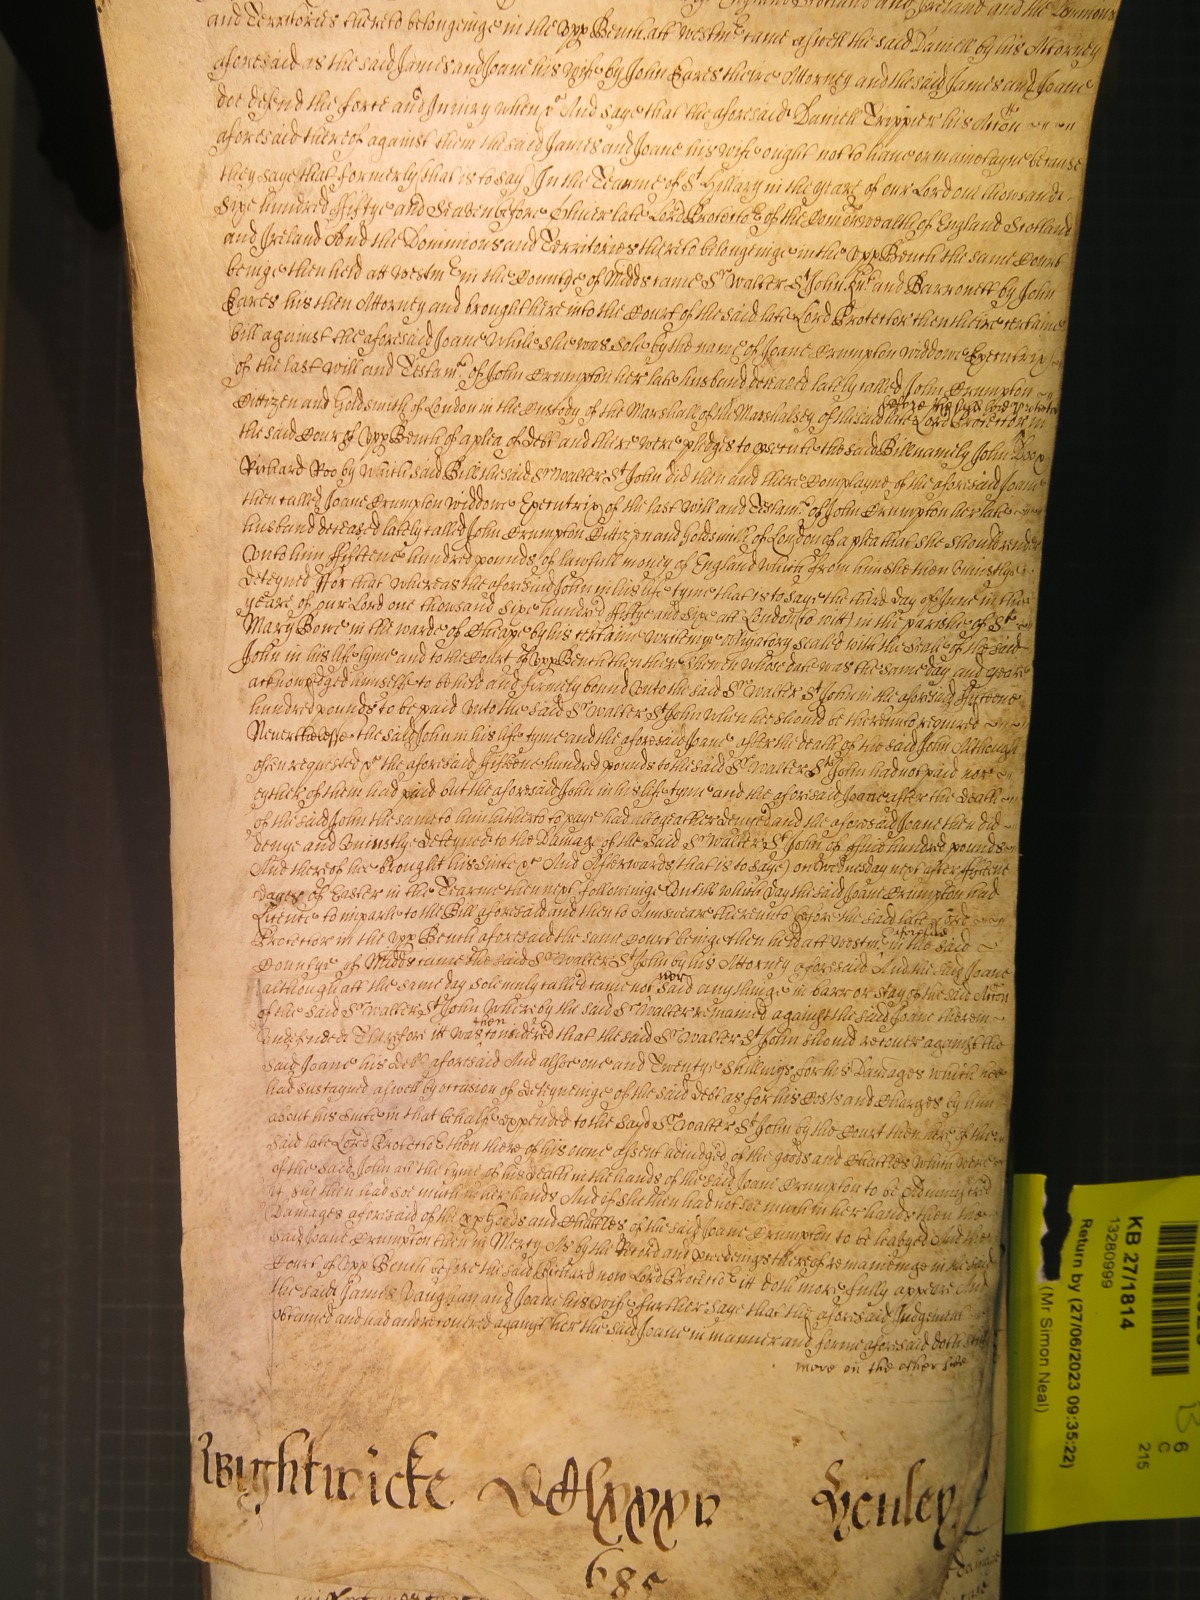 England Scotland and Ireland and the Dominions
and Territories thereto belongeinge in the Upp Bench att Westmr came aswell the said Daniell by his Attorney
aforesaid as the said James and Joane his Wife by John Eares theire Attorney and the said James and Joane
doe defend the force and Iniury when &c And saye that the aforesaid Daniell Trippier his Accon
aforesaid thereof against them the said James and Joane his wife ought not to haue or maintayne because
they saye that formerly that is to say In the Tearme of St Hillary in the yeare of our Lord one thousand
sixe hundred fiftye and Seaven before Oliver late Lord Protector of the Comonwealth of England Scotland
and Ireland And the Dominions and Territories thereto belongeinge in the Upp Bench the same Court
beinge then held att Westmr in the Countye of Midds came Sr Walter St John Knt and Barronett by John
Eares his then Attorney and brought here into the Court of the said late Lord Protector then theire certaine
Bill against the aforesaid Joane while she was sole by the name of Joane Crumpton Widdowe Executrix
of the last will and Testamt of John Crumpton her late husband deceased lately called John Crumpton
Cittizen and Goldsmith of London in the Custody of the Marshall of the Marshalsey of the said late Lord Protector in
the said Court of Upp Bench of a plea of debt and there were pledges to prosecute the said Bill namely John Doo &
Richard Roo by which said Bill the said Sr Walter St John did then and there Complayne of the aforesaid Joane
then called Joane Crumpton Widdowe Executrix of the last Will and Testamt of John Crumpton her late
husband deceased lately called John Crumpton Cittizen and Goldsmith of London of a plea that she should render
vnto him fifteene hundred pounds of lawfull money of England which from him she then vniustly
deteyned ffor that Whereas the aforesaid John in his life tyme that is to saye the third day of June in the
yeare of our Lord one thousand sixe hundred fiftye and sixe att London (to wit) in the parishe of St
Mary Bowe in the warde of Cheape by his certaine writeinge obligatory sealed with the Seale of the said
John in his life tyme and to the Court of Upp Bench then there shewen whose date was the same day and yeare
acknowledged himselfe to be held and firmely bound vnto the said Sr Walter St John in the aforesaid fifteene
hundred pounds to be paid vnto the said Sr Walter St John when hee should be thereunto required
Neverthelesse the said John in his life tyme and the aforesaid Joane after the death of the said John Although
often requested &c the aforesaid fifteene hundred pounds to the said Sr Walter St John had not paid nor
eyther of them had paid but the aforesaid John in his life tyme and the aforesaid Joane after the death
of the said John the same to him hitherto to paye had altogeather denyed and the aforesaid Joane then did
denye and vniustly deteyned to the Damage of the said Sr Walter St John of hundred pounds
And thereof hee brought his Suite &c And Afterwards that is to saye on Wednesday next after fifteene
dayes of Easter in the Tearme then next followeinge vntill which day the said Joane Crumpton had
Licence to imparle to the Bill aforesaid and then to Answeare thereunto before the said late Lord
Protector in the Upp Bench aforesaid the same Court beinge then held att Westmr in the said
Countye of Midds came the said Sr Walter St John by his Attorney aforesaid And the said Joane
although att the same day solemnly called came not nor said any thinge in barr or stay of the said Accon
of the said Sr Walter St John Whereby the said Sr Walter remained against the said Joane therein
vndefended Therefore itt was then considered that the said Sr Walter St John should recover against the
said Joane his debt aforesaid And alsoe one and Twentye shillings for his Damages which hee
had sustayned aswell by occasion of deteyneinge of the said debt as for his Costs and Charges by him
about his Suite in that behalfe expended to the sayd Sr Walter St John by the Court then here of the
said late Lord Protector then there of his owne assent adiudged of the goods and Chattles which were
of the said John att the tyme of his death in the hands of the said Joane Crumpton to be Administred
if she then had soe much in her hands And if she then had not soe much in her hands then the
Damages aforesaid of the pper Goods and Chattles of the said Joane Crumpton to be leavyed And the
said Joane Crumpton then in Mercy As by the Record and proceedings thereof remaineinge in the said
Court of Upp Bench before the said Richard now Lord Protector itt doth more fully appeare And
the said James Vaughan and Joane his wife further saye that the aforesaid Judgement
obtained and had and recovered against her the said Joane in manner and forme aforesaid doth still
more on the other side
Wightwicke DClxxxv Henley
685
KB 27/1814
13280999
Return by (27/06/2023 09:35:22)
(Mr Simon Neal)
6
C
215